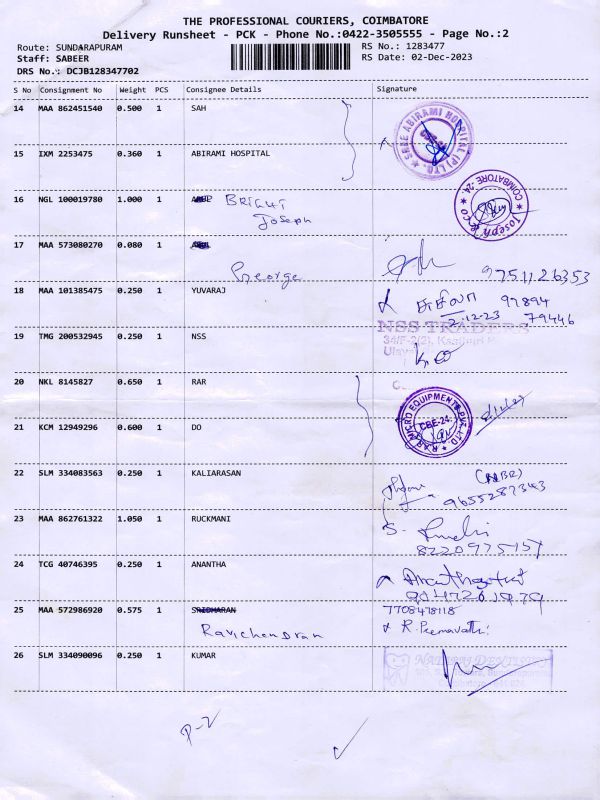 THE PROFESSIONAL COURIERS, COIMBATORE
Delivery Runsheet - PCK - Phone No.:0422-3505555 - Page No.:2
Route: SUNDARAPURAM
RS No.: 1283477
Staff: SABEER
RS Date: 02-Dec-2023
DRS No.: DCJB128347702
S No Consignment No Weight PCS Consignee Details Signature
14 MAA 862451540 0.500 1 SAH
SREE ABIRAMI HOSPITAL (P) LTD.
15 IXM 2253475 0.360 1 ABIRAMI HOSPITAL
16 NGL 100019780 1.000 1 BRIGHT
Joseph
Joseph & Co COIMBATORE-24.
17 MAA 573080270 0.080 1
George
9751126353
18 MAA 101385475 0.250 1 YUVARAJ
97894
2-12-23 79446
19 TMG 200532945 0.250 1 NSS
NSS TRADERS
20 NKL 8145827 0.650 1 RAR
RAR MICRO EQUIPMENTS PVT. LTD.
CBE-24.
21 KCM 12949296 0.600 1 DO
22 SLM 334083563 0.250 1 KALIARASAN
9655287343
23 MAA 862761322 1.050 1 RUCKMANI
24 TCG 40746395 0.250 1 ANANTHA
25 MAA 572986920 0.575 1 SRIDHARAN
Ravichendran
7708478118
R. Premavathi
26 SLM 334090096 0.250 1 KUMAR
P-2